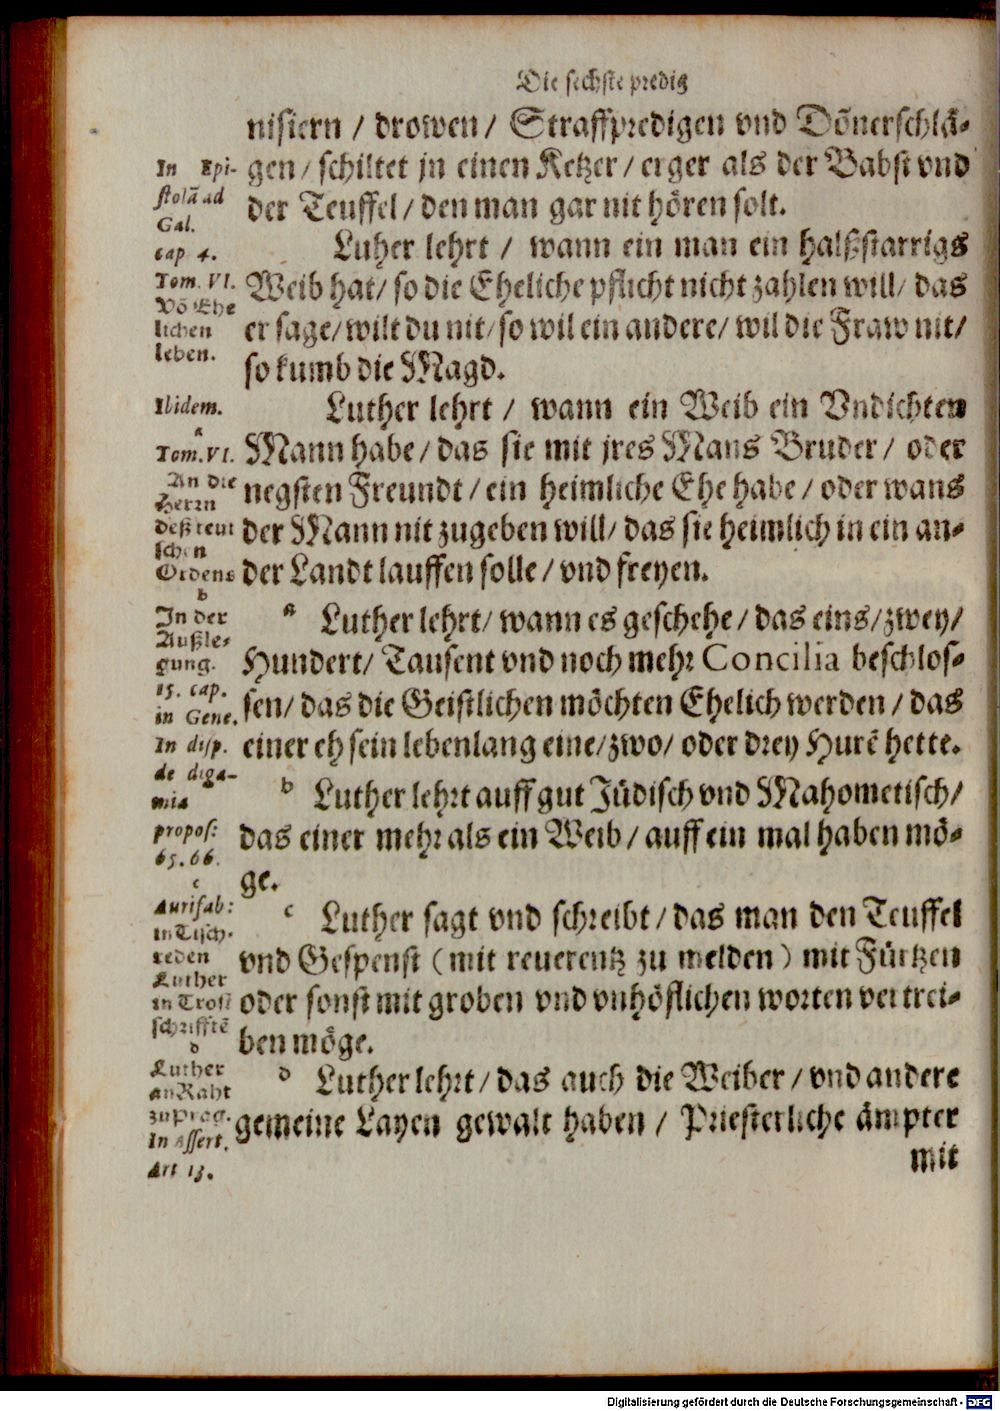 Die sechste predig
nisiern / drowen / Straffpredigen vnd Dõnerschlä-
gen / schiltet jn einen Ketzer / erger als der Babst vnd
der Teuffel / den man gar nit hören solt.
Luher lehrt / wann ein man ein halßstarrigs
Weib hat / so die Eheliche pflicht nicht zahlen will / das
er sage / wilt du nit / so wil ein andere / wil die Fraw nit /
so kumb die Magd.
Luther lehrt / wann ein Weib ein Vndichten
Mann habe / das sie mit jres Mans Bruder / oder
negsten Freundt / ein heimliche Ehe habe / oder wans
der Mann nit zugeben will / das sie heimlich in ein an-
der Landt lauffen solle / vnd freyen.
a Luther lehrt / wann es geschehe / das eins / zwey /
Hundert / Tausent vnd noch mehr Concilia beschlos-
sen / das die Geistlichen möchten Ehelich werden / das
einer eh sein lebenlang eine / zwo / oder drey Hurẽ hette.
b Luther lehrt auff gut Jüdisch vnd Mahometisch /
das einer mehr als ein Weib / auff ein mal haben mö-
ge.
c Luther sagt vnd schreibt / das man den Teuffel
vnd Gespenst (mit reuerentz zu melden) mit Fürtzen
oder sonst mit groben vnd vnhöflichen worten vertrei-
ben möge.
d Luther lehrt / das auch die Weiber / vnd andere
gemeine Layen gewalt haben / Priesterliche ämpter
mit
In Epi-
stolã ad
Gal.
cap 4.
Tom. VI.
Võ Ehe
lichen
leben.
Ibidem.
a
Tom. VI.
An die
Herrn
deß teut
schen
Ordens
b
In der
Außle-
gung.
15. cap.
in Gene.
In disp.
de diga-
mia
propos:
65. 66.
c
Aurifab:
in Tisch-
reden
Luther
in Trost
schrifftẽ
d
Luther
an Raht
zu Prag.
In Assert.
Art 13.
Digitalisierung gefördert durch die Deutsche Forschungsgemeinschaft - DFG